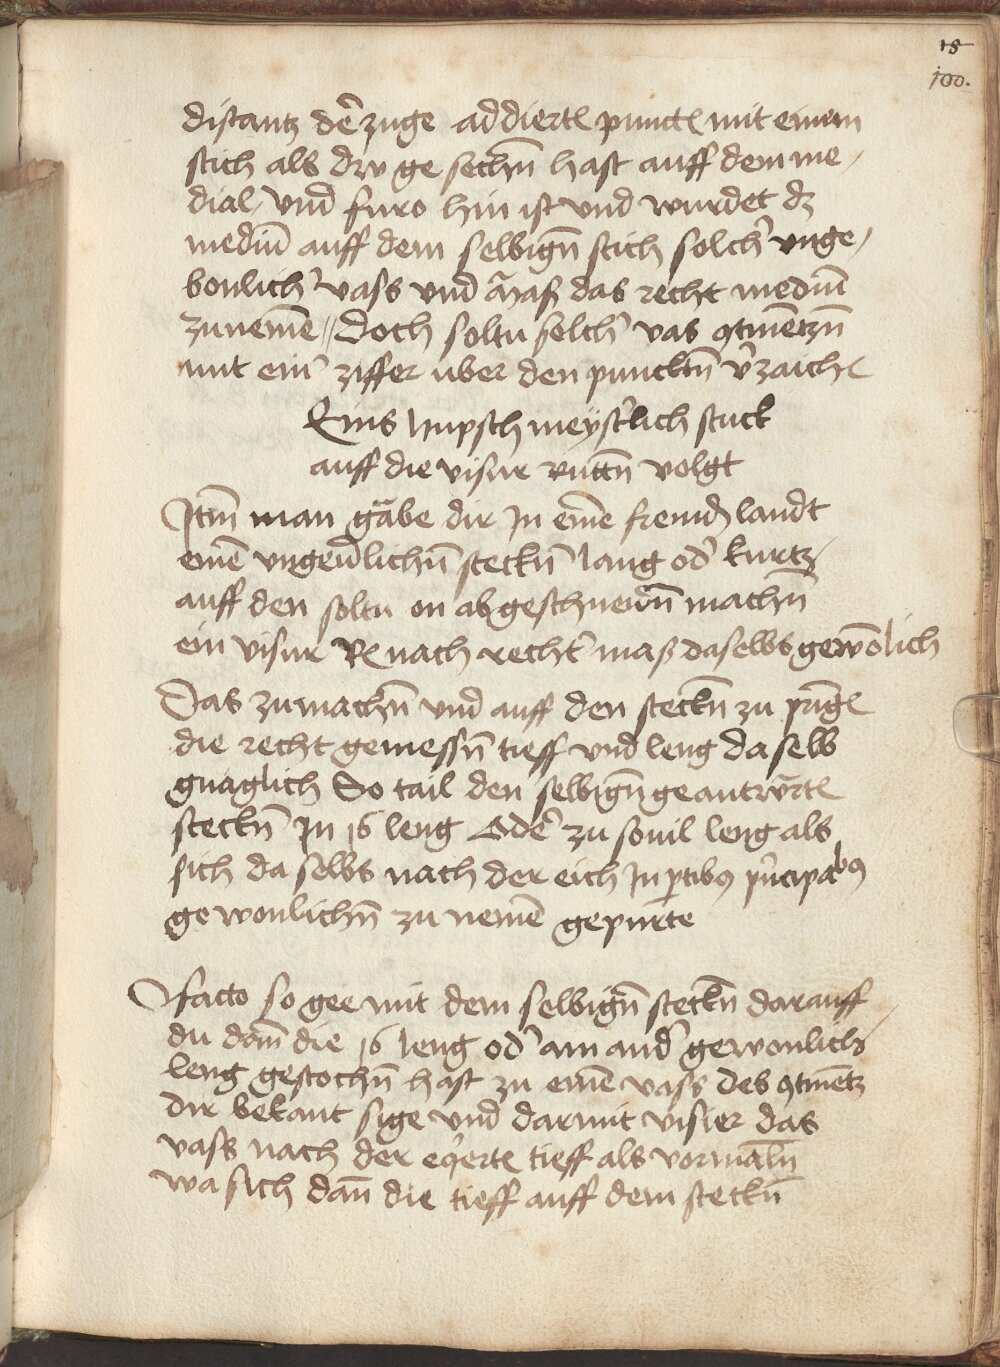 18
100.
distantz dē zuge addiertē punctē mit einem
stich als dw ge sechn̄ hast auff dem me,
dial, Und furo hin ist und wurdet dz
mediū auff dem selbign̄ stich solch' unge,
bonlich' vass und māss das recht mediū
zunemē,, Doch soltu solch' vas ꝯtinētzn̄
mit ein' ziffer uber den puncktn̄ v'zaichē
Eins Hupsch meyst'lich stuck
auff die visur ruttn̄ volgt
Itm̄ man gābe dir In einē fremdn̄ landt
einē ungeūlichn̄ steckn̄ lang od' kurtz,
auff den soltu on abgeschneidn̄ machn̄
ein visur R nach recht' mass daselbs gewōlich
Das zumachn̄ und auff den steckn̄ zu pn̄gē
die recht gemessn̄ tieff und leng daselb
gnāglich So tail den selbign̄ geantwūrtē
steckn̄ In 16 leng Odē zu souil leng als
sich da selbs nach der eich In ptibꝯ pn̄cipabꝯ
gewonlichn̄ zu nemē gepurte
Ofacto so gee mit dem selbign̄ steckn̄ darauff
du dām die 16 leng od' ain and' gewonlich
leng gestochn̄ hast zu einē vass des ꝯtinētz
dir bekant sige und darmit visier das
vass nach der eq'ertē tieff als vormāln̄
wa sich dan̄ die tieff auff dem steckn̄